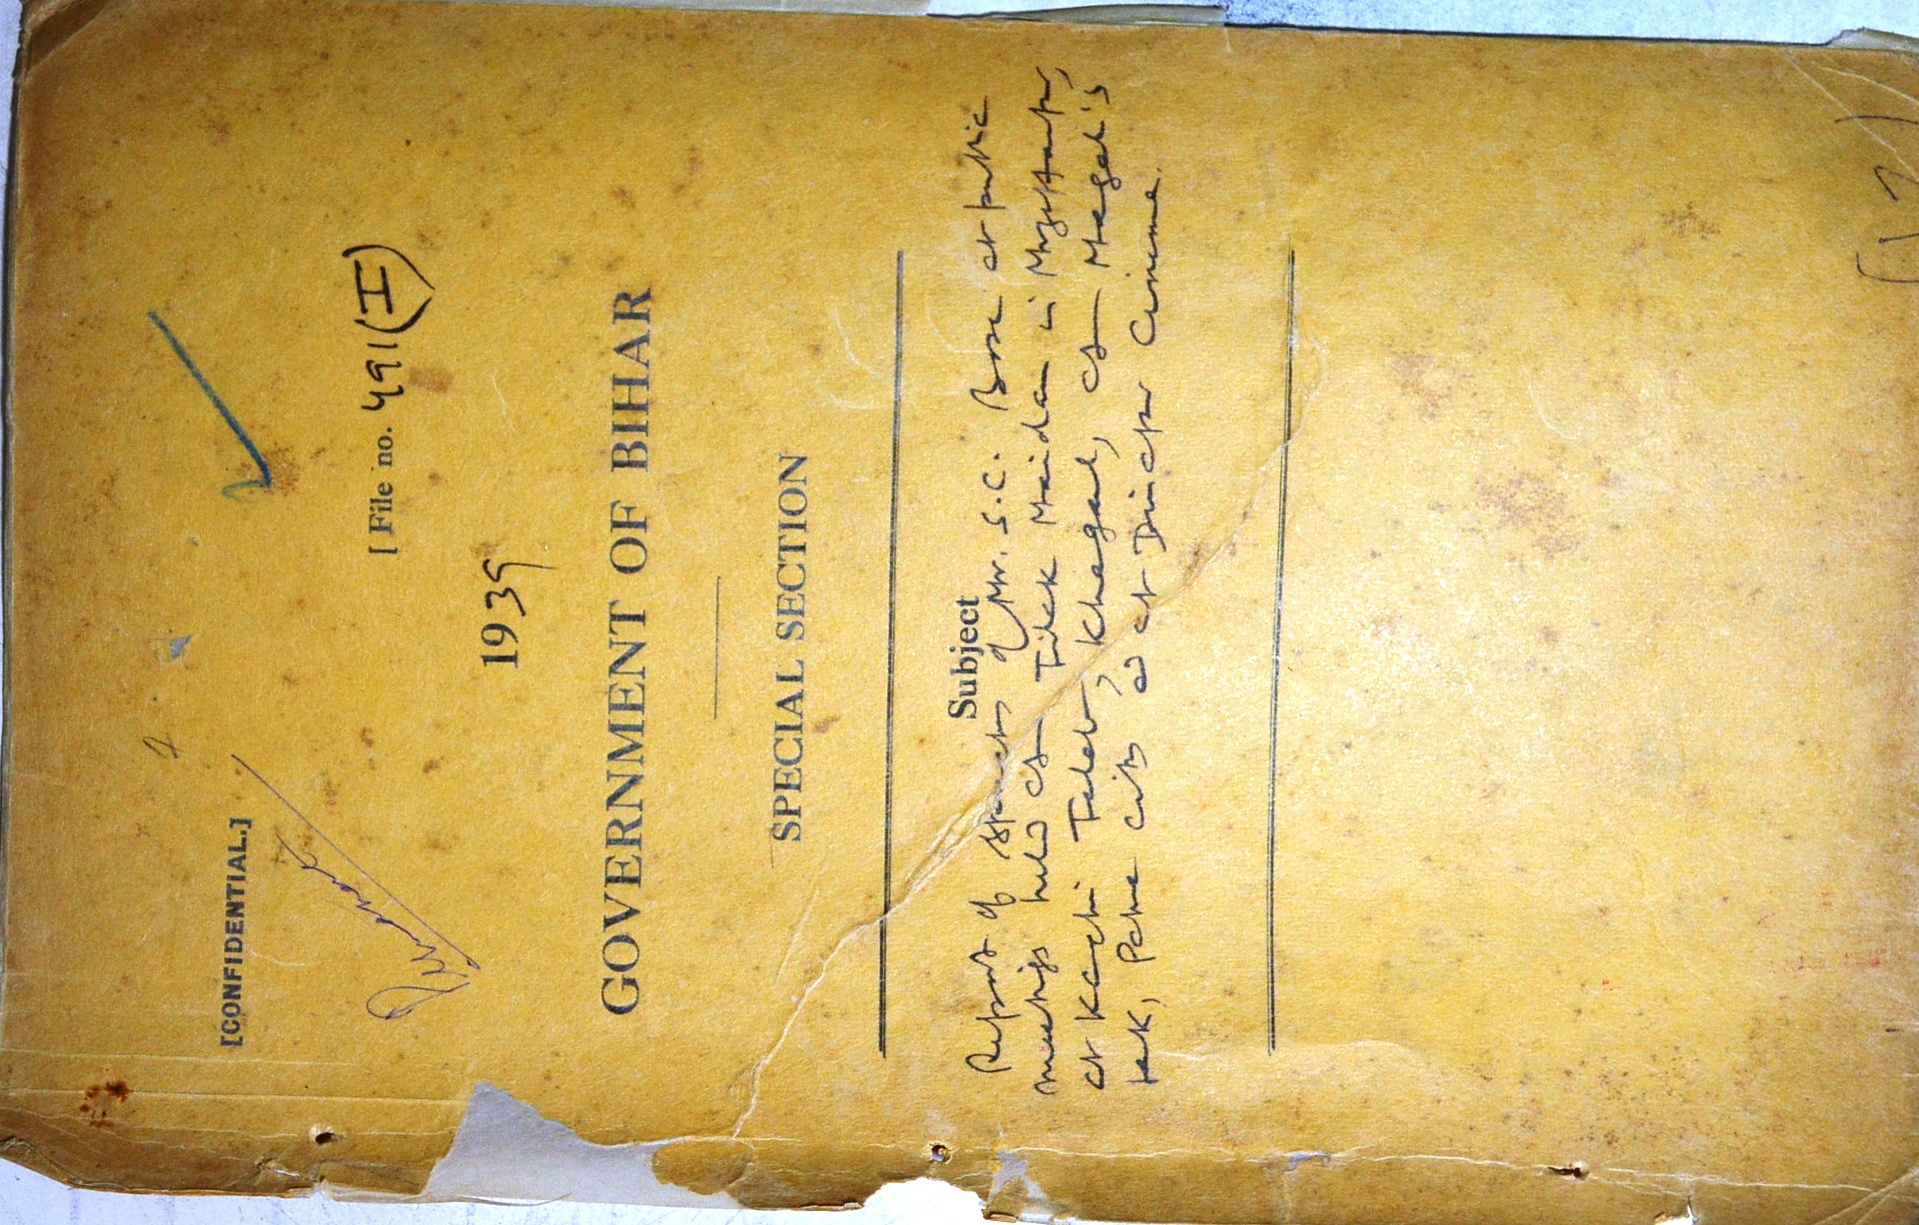 [CONFIDENTIAL.]
[File no. 491(I)
1939
GOVERNMENT OF BIHAR
SPECIAL SECTION
Subject
Report of speeches of Mr. S.C. Bose at public
meetings held at Tilak Maidan in Muzaffarpur,
at Kachi Talab, Khagaul, at Mangal's
tank, Patna City and at Dinapur Cinema.